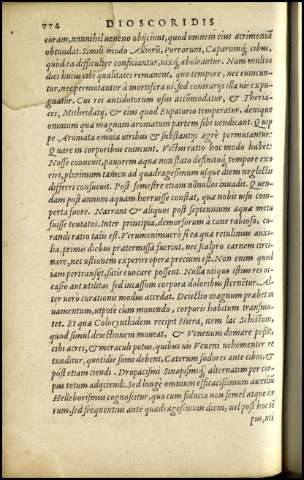 774 DIOSCORIDIS
curam, nonnihil veneno obijciunt, quod omnem eius acrimoniã
obtundat. Simili modo Alliorũ, Porrorum, Caparumq; cibus,
quòd ea difficulter conficiantur, vixq; aboleantur. Nam multos
dies huius cibi qualitates remanent, quo tempore, nec euincun-
tur, nec permutantur à mortifera vi, sed contrarijs illa vis expu-
gnatur. Cui rei antidotorum usus accõmodatur, & Theria-
ces, Mithridatij, & eius quod Eupatorio temperatur, denique
omnium quæ magnam aromatum partem sibi vendicant. Quip-
pe Aromata omnia viribus & substantijs ægrè permutantur:
Quare in corporibus euincunt. Vectus ratio hoc modo habet:
Nosse conuenit, pauorem aquæ non stato definitoq; tempore exo
riri, plurimum tamen ad quadragesimum usque diem neglectu
differri consueuit. Post semestre etiam nonnullos inuadit. Quen-
dam post annum aquam horruisse constat, quæ nobis usu com-
perta fuere. Narrant & aliquos post septennium aquæ metu
fuisse tentatos. Inter principia, demorsorum à cane rabioso, cu-
randi ratio talis est. Verumenimuero si ea quæ retulimus auxi-
lia, primis diebus prætermissa fuerint, nec scalpro carnem circi-
nare, nec ustionem experiri operæ precium est. Non enim quod
iam pertransijt, satis euocare possent. Nulla itaque istius reî oc-
casio aut utilitas sed incassum corpora doloribus sternetur. Al-
ter verò curationis modus accedat. Deiectio magnum præbet iu
uamentum, utpote cùm mouendo, corporis habitum transmu-
tet. Et quæ Colocynthidem recipit Hiera, nem lac Schistum,
quod simul deiectionem moueat, & Venenum domare possit,
cibi acres, & meraculi potus, quibus vis Veneni vehementer re
tunditur. quotidie sumi debent, Cæterum sudores ante cibos, &
post etiam ciendi. Dropacismi Sinapismiq; alternatim per cor-
pus totum adijciendi. Sed longè omnium efficacissimum auxiliũ
Helleborismus cognoscitur, quo cum fiducia non semel atque ite
rum, sed frequentius ante quadragesimum diem, vel post hoc tẽ
pus, uti